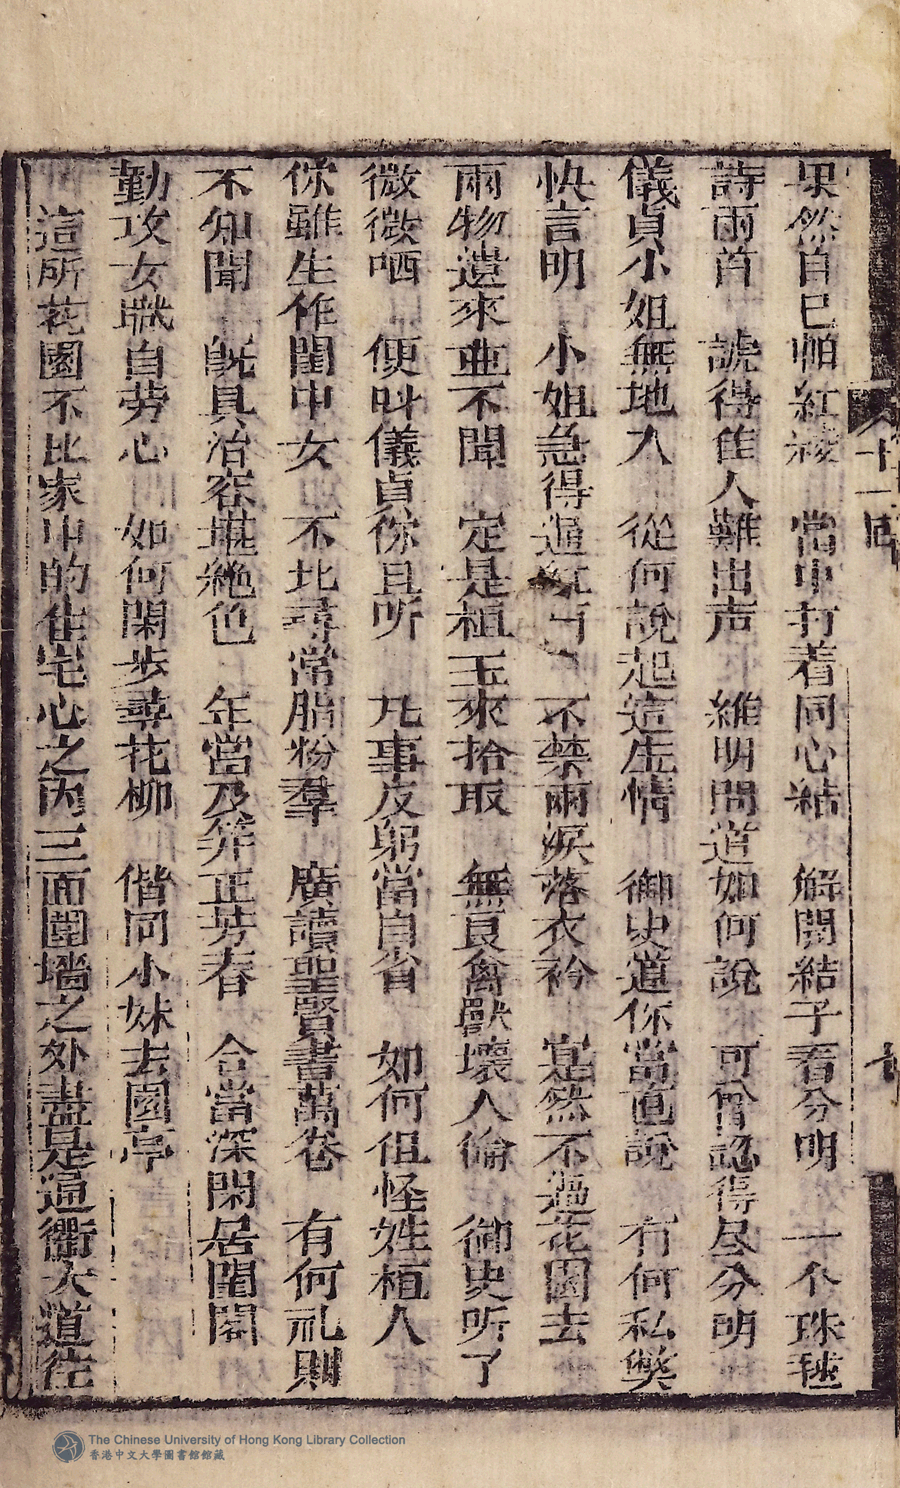 果然自已帕紅綾　當中打着同心結　解開結子看分明　一个珠毬
詩兩首　諕得隹人難出声　維明問道如何說　可曾認得尽分明
儀貞小姐無地入　從何說起這生情　御史道你當直說　有何私獘
快言明　小姐急得通紅　不禁兩淚落衣衿　寔然不過花園去
兩物遺來並不聞　定是桓玉來拾取　無良禽獸壞人倫　御史听了
微微哂　便叫儀貞你且听　凢事反躬當自省　如何但怪姓桓人
你雖生作閨中女　不比尋常脂粉羣　廣讀聖賢書萬卷　有何礼則
不知聞　既具冶容堪絶色　年當乃笄正芳春　合當深閑居閨閣
勤攻女職自劳心　如何閑步尋花柳　偕同小妹去園亭
這所花園不比家中的住宅心之丙三面圍墻之外盡是通衢大道徃
十一回
The Chinese University of Hong Kong Library Collection
香港中文大學圖書館館藏